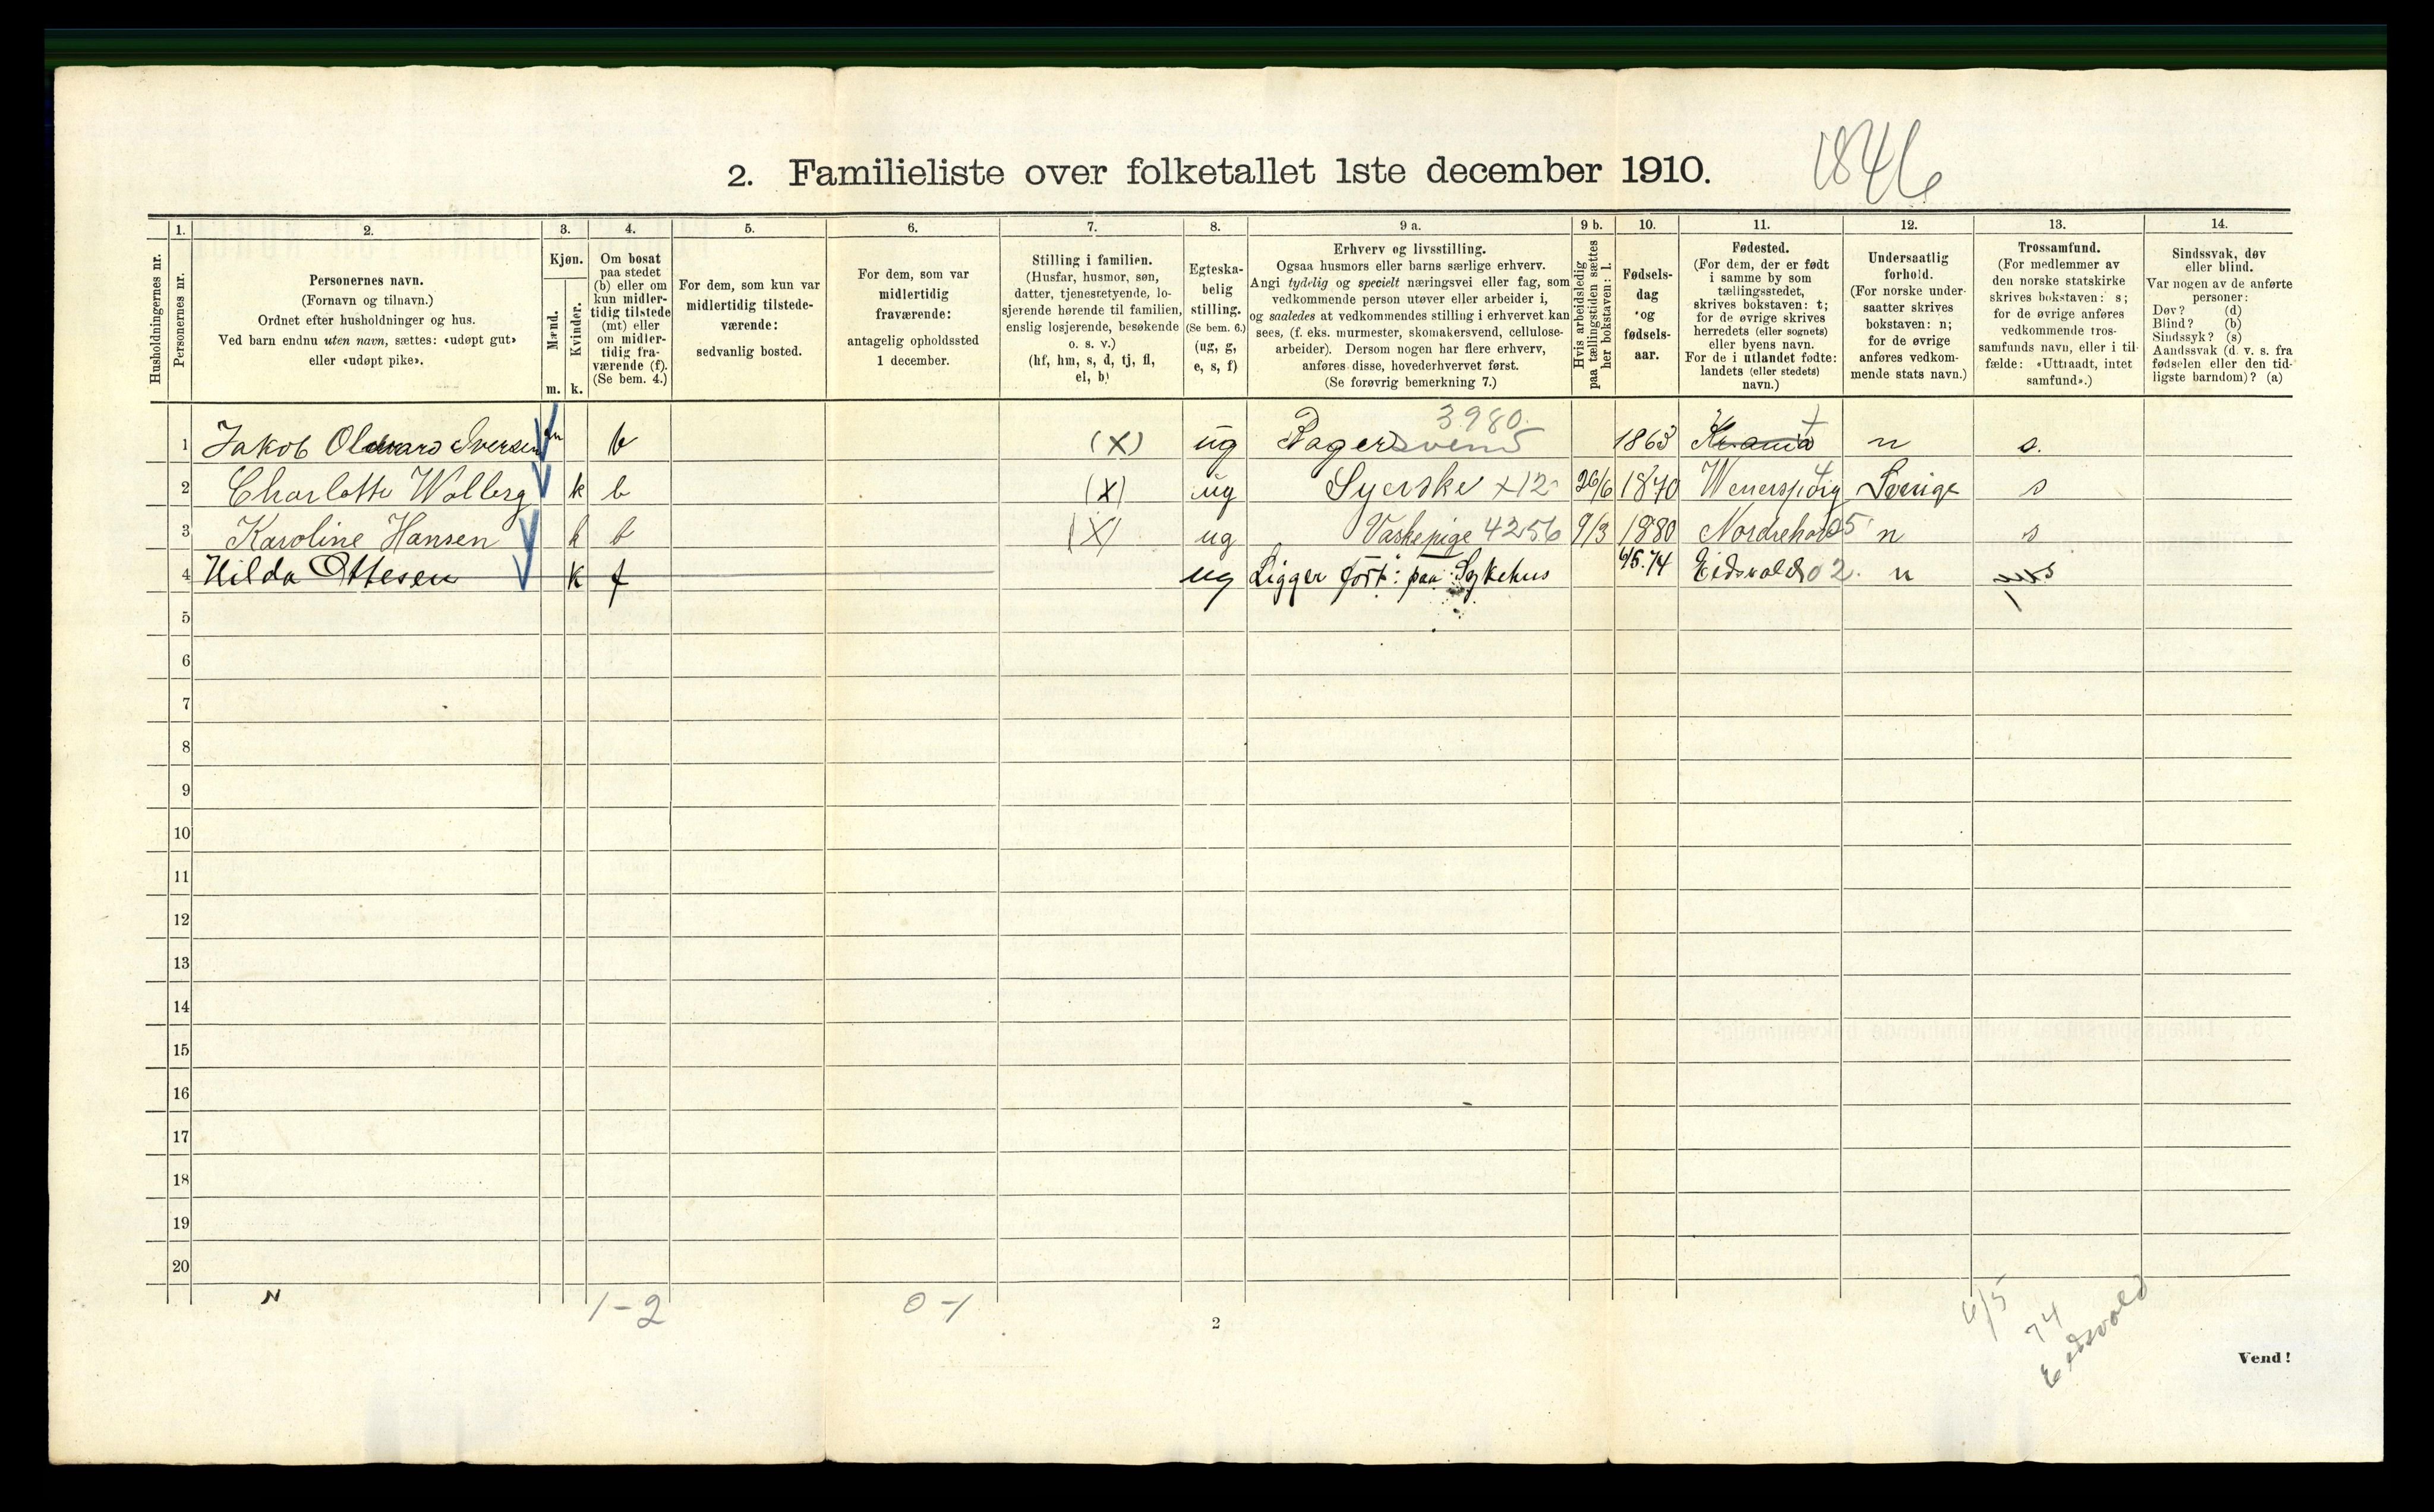 1846
2. Familieliste over folketallet 1ste december 1910.
1. 2. 3. 4. 5. 6. 7. 8. 9 a. 9 b. 10. 11. 12. 13. 14.
Husholdningernes nr.
Personernes nr.
Personernes navn.
(Fornavn og tilnavn.)
Ordnet efter husholdninger og hus.
Ved barn endnu uten navn, sættes: «udøpt gut»
eller «udøpt pike».
Kjøn.
Mænd.
m.
Kvinder.
k.
Om bosat
paa stedet
(b) eller om
kun midler-
tidig tilstede
(mt) eller
om midler-
tidig fra-
værende (f).
(Se bem. 4.)
For dem, som kun var
midlertidig tilstede-
værende:
sedvanlig bosted.
For dem, som var
midlertidig
fraværende:
antagelig opholdssted
1 december.
Stilling i familien.
(Husfar, husmor, søn,
datter, tjenestetyende, lo-
sjerende hørende til familien,
enslig losjerende, besøkende
o. s. v.)
(hf, hm, s, d, tj, fl,
el, b)
Egteska-
belig
stilling.
(Se bem. 6.)
(ug, g,
e, s, f)
Erhverv og livsstilling.
Ogsaa husmors eller barns særlige erhverv.
Angi tydelig og specielt næringsvei eller fag, som
vedkommende person utøver eller arbeider i,
og saaledes at vedkommendes stilling i erhvervet kan
sees, (f. eks. murmester, skomakersvend, cellulose-
arbeider). Dersom nogen har flere erhverv,
anføres disse, hovederhvervet først.
(Se forøvrig bemerkning 7.)
Hvis arbeidsledig
paa tællingstiden sættes
her bokstaven: l.
Fødsels-
dag
og
fødsels-
aar.
Fødested.
(For dem, der er født
i samme by som
tællingsstedet,
skrives bokstaven: t;
for de øvrige skrives
herredets (eller sognets)
eller byens navn.
For de i utlandet fødte:
landets (eller stedets)
navn.)
Undersaatlig
forhold.
(For norske under-
saatter skrives
bokstaven: n;
for de øvrige
anføres vedkom-
mende stats navn.)
Trossamfund.
(For medlemmer av
den norske statskirke
skrives bokstaven: s;
for de øvrige anføres
vedkommende tros-
samfunds navn, eller i til-
fælde: «Uttraadt, intet
samfund».)
Sindssvak, døv
eller blind.
Var nogen av de anførte
personer:
Døv? (d)
Blind? (b)
Sindssyk? (s)
Aandssvak (d. v. s. fra
fødselen eller den tid-
ligste barndom)? (a)
3980.
1 Jakob Oldvard Iversen m b (X) ug Bagersvend 1863 Kr.ania t n s.
2 Charlotte Wolberg k b (X) ug Syerske x12 26/6 1870 Wenersborg 4 Sverige s
3 Karoline Hansen k b (X) ug Vaskepige 4256 9/3 1880 Nordrehov 05 n s
4 Hilda Ottesen k f ug Ligger fort: paa Sykehus 6/5.74 Eidsvold 02. n s
5
6
7
8
9
10
11
12
13
14
15
16
17
18
19
20
N 1-2 0-1
2
6/5
74
Eidsvold
Vend!